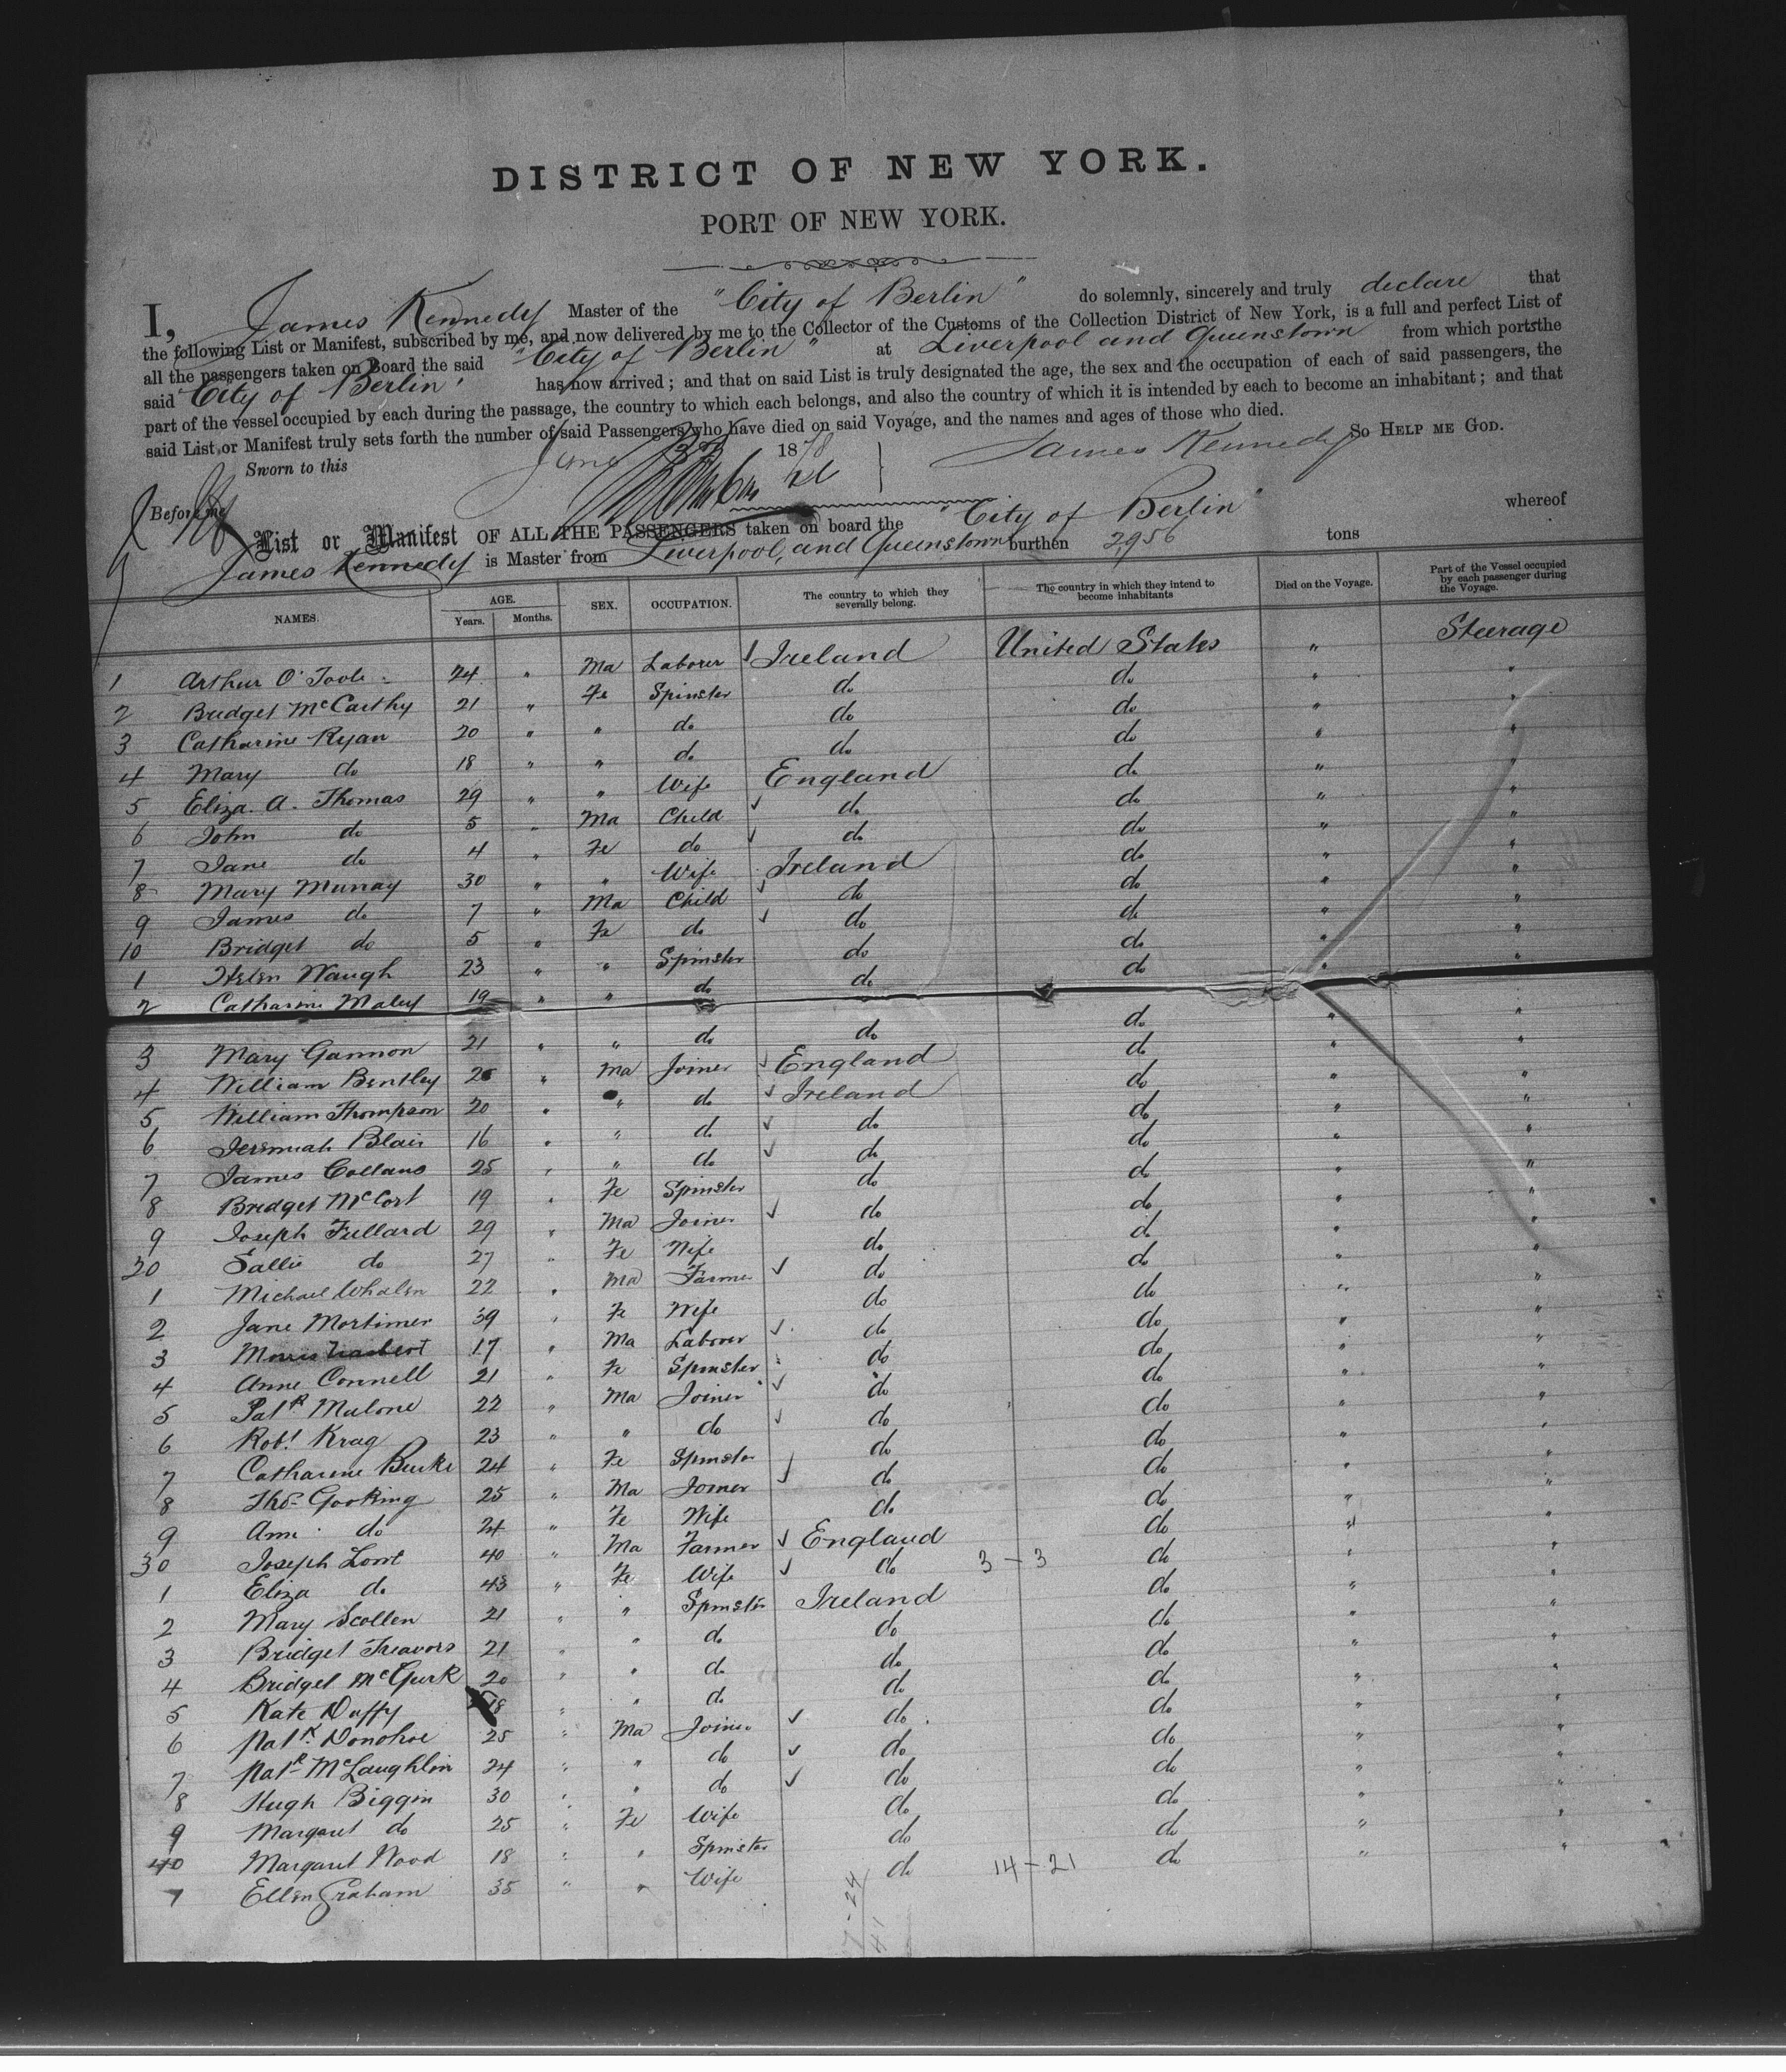 DISTRICT OF NEW YORK.
PORT OF NEW YORK.
I, James Kennedy Master of the "City of Berlin" do solemnly, sincerely and truly declare that
the following List or Manifest, subscribed by me, and now delivered by me to the Collector of the Customs of the Collection District of New York, is a full and perfect List of
all the passengers taken on Board the said "City of Berlin" at Liverpool and Queenstown from which ports the
said "City of Berlin" has now arrived; and that on said List is truly designated the age, the sex and the occupation of each of said passengers, the
part of the vessel occupied by each during the passage, the country to which each belongs, and also the country of which it is intended by each to become an inhabitant; and that
said List or Manifest truly sets forth the number of said Passengers who have died on said Voyage, and the names and ages of those who died.
SO HELP ME GOD.
Sworn to this June 1878 James Kennedy
Before me
List or Manifest OF ALL THE PASSENGERS taken on board the "City of Berlin" whereof
James Kennedy is Master from Liverpool, and Queenstown burthen 2956 tons
NAMES. AGE. Years. Months. SEX. OCCUPATION. The country to which they severally belong. The country in which they intend to become inhabitants Died on the Voyage. Part of the Vessel occupied by each passenger during the Voyage.
1 Arthur O'Toole 24 " Ma Laborer Ireland United States " Steerage
2 Bridget McCarthy 21 " Fe Spinster do do " "
3 Catharine Ryan 20 " " do do do " "
4 Mary do 18 " " do do do " "
5 Eliza. A. Thomas 29 " " Wife England do " "
6 John do 5 " Ma Child do do " "
7 Jane do 4 " Fe do do do " "
8 Mary Murray 30 " " Wife Ireland do " "
9 James do 7 " Ma Child do do " "
10 Bridget do 5 " Fe do do do " "
1 Helen Waugh 23 " " Spinster do do " "
2 Catharine Maley 19 " " do do do " "
3 Mary Gannon 21 " " do do do " "
4 William Bentley 25 " Ma Joiner England do " "
5 William Thompson 20 " " do Ireland do " "
6 Jeremiah Blair 16 " " do do do " "
7 James Collans 25 " " do do do " "
8 Bridget McCort 19 " Fe Spinster do do " "
9 Joseph Fullard 29 " Ma Joiner do do " "
20 Sallie do 27 " Fe Wife do do " "
1 Michael Whalen 22 " Ma Farmer do do " "
2 Jane Mortimer 39 " Fe Wife do do " "
3 Morris 17 " Ma Laborer do do " "
4 Anne Connell 21 " Fe Spinster do do " "
5 Patk Malone 22 " Ma Joiner do do " "
6 Robt Krag 23 " " do do do " "
7 Catharine Burke 24 " Fe Spinster do do " "
8 Thos Gooking 25 " Ma Joiner do do " "
9 Ann do 24 " Fe Wife do do " "
30 Joseph Lont 40 " Ma Farmer England do " "
1 Eliza do 43 " Fe Wife do 3-3 do " "
2 Mary Scollen 21 " " Spinster Ireland do " "
3 Bridget Treavors 21 " " do do do " "
4 Bridget McGurk 20 " " do do do " "
5 Kate Duffy 18 " " do do do " "
6 Patk Donohoe 25 " Ma Joiner do do " "
7 Patk McLaughlin 24 " " do do do " "
8 Hugh Biggin 30 " " do do do " "
9 Margaret do 25 " Fe Wife do do " "
40 Margaret Wood 18 " " Spinster do do " "
1 Ellen Graham 35 " " Wife do 14-21 do " "